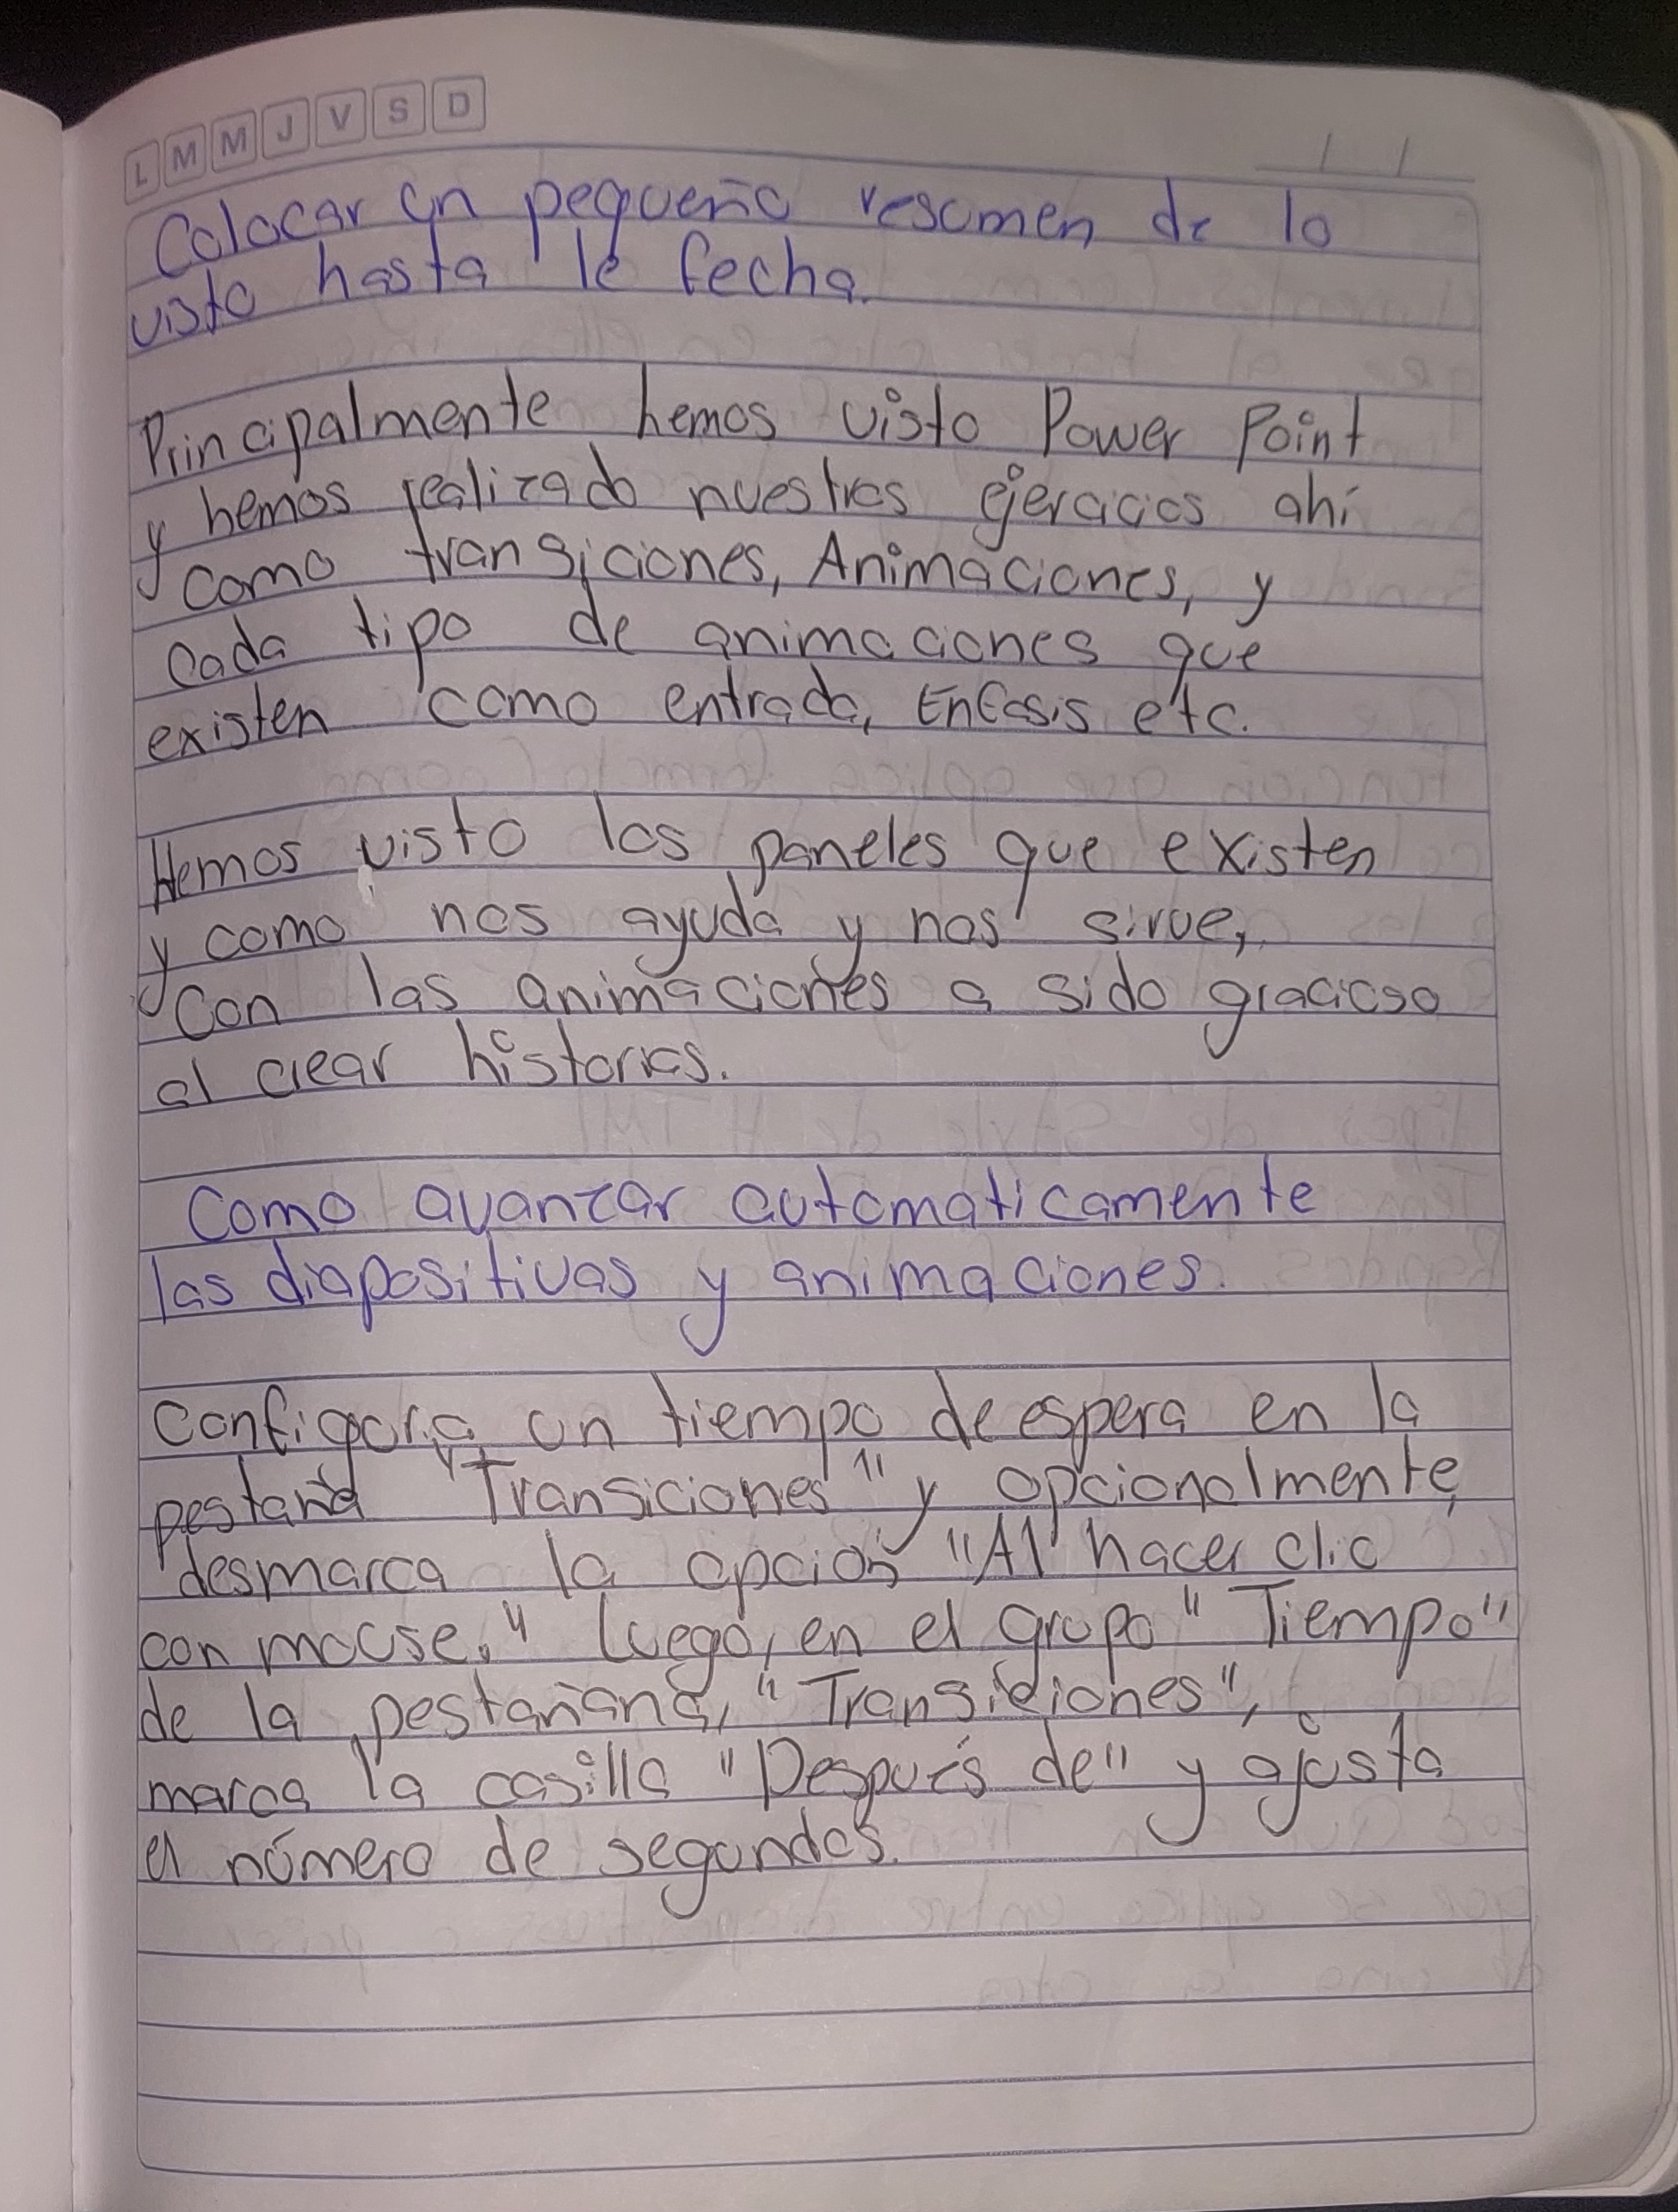 L M M J V S D
Colocar un pequeño resumen de lo
visto hasta le fecha.
Principalmente hemos visto Power Point
y hemos realizado nuestros ejercicios ahí
como transiciones, Animaciones, y
cada tipo de animaciones que
existen como entrada, Enfasis etc.
Hemos visto los paneles que existen
y como nos ayuda y nos sirve,
Con las animaciones a sido gracioso
al crear historias.
Como avanzar automaticamente
las diapositivas y animaciones.
Configura un tiempo de espera en la
pestaña "Transiciones" y opcionalmente,
desmarca la opción "Al hacer clic
con mouse." luego, en el grupo "Tiempo"
de la pestañana, "Transiciones",
marca la casilla "Después de" y ajusta
el número de segundos.